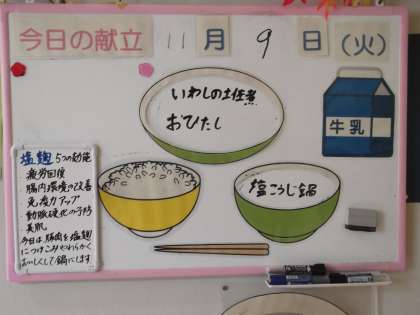 今日の献立 11月 9日(火)
いわしの土佐煮
おひたし
牛乳
塩こうじ鍋
塩麹 5つの効能
疲労回復
腸内環境の改善
免疫力アップ
動脈硬化の予防
美肌
今日は、豚肉を塩麹
につけこみやわらかく
おいしくして鍋にします